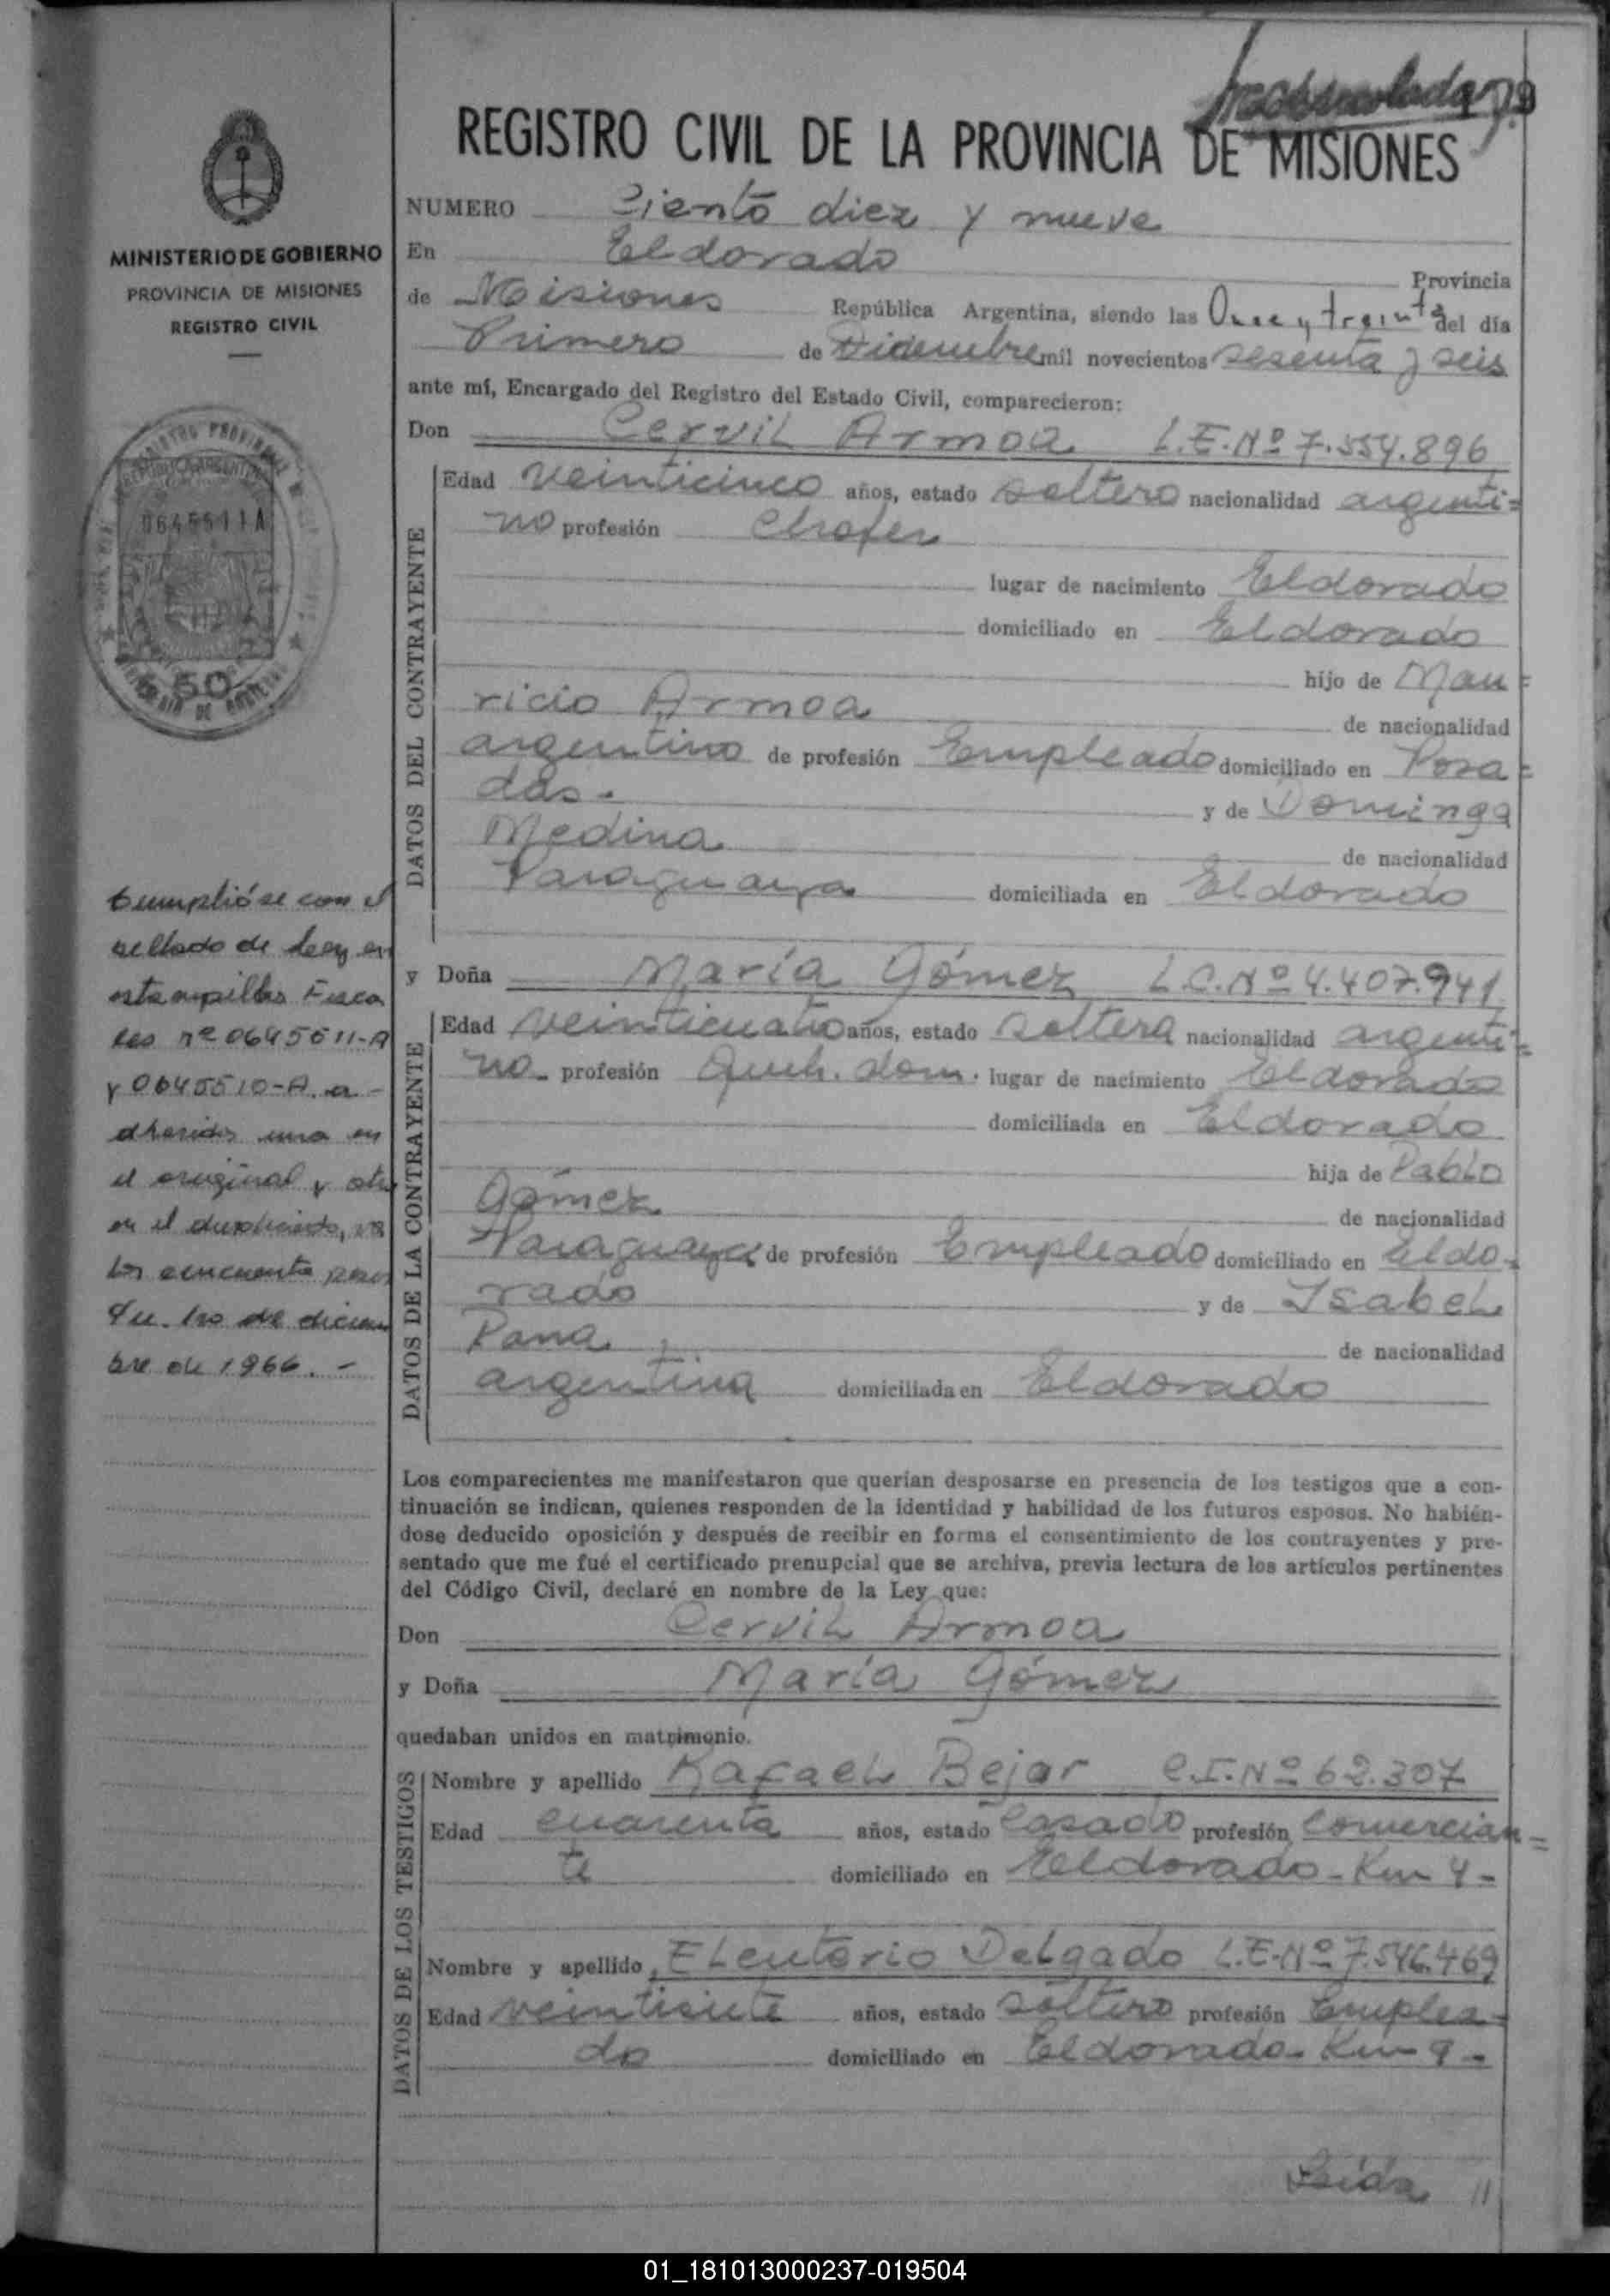 79
REGISTRO CIVIL DE LA PROVINCIA DE MISIONES
MINISTERIO DE GOBIERNO
PROVINCIA DE MISIONES
REGISTRO CIVIL
0645511A
50
Cumplióse con el
sellado de Ley en
estampillas Fisca
les nº 0645511-A
y 0645510-A. a-
dheridas una en
el original y otra
en el duplicado, va
lor cincuenta pesos
1ro de diciem
bre de 1966. -
NUMERO Ciento diez y nueve
En Eldorado Provincia
de Misiones República Argentina, siendo las Once y treinta del día
Primero de Diciembre mil novecientos sesenta y seis
ante mí, Encargado del Registro del Estado Civil, comparecieron:
Don Cervil Armoa L.E.Nº 7.554.896
DATOS DEL CONTRAYENTE
Edad veinticinco años, estado soltero nacionalidad argenti=
no profesión Chofer
lugar de nacimiento Eldorado
domiciliado en Eldorado
hijo de Mau=
ricio Armoa de nacionalidad
argentino de profesión Empleado domiciliado en Posa=
das. y de Dominga
Medina de nacionalidad
Paraguaya domiciliada en Eldorado
y Doña María Gómez L.C.Nº 4.407.941
DATOS DE LA CONTRAYENTE
Edad veinticuatro años, estado soltera nacionalidad argenti=
na profesión Queh. dom. lugar de nacimiento Eldorado
domiciliada en Eldorado
hija de Pablo
Gómez de nacionalidad
Paraguaya de profesión Empleado domiciliado en Eldo-
rado y de Isabel
de nacionalidad
argentina domiciliada en Eldorado
Los comparecientes me manifestaron que querían desposarse en presencia de los testigos que a con-
tinuación se indican, quienes responden de la identidad y habilidad de los futuros esposos. No habién-
dose deducido oposición y después de recibir en forma el consentimiento de los contrayentes y pre-
sentado que me fué el certificado prenupcial que se archiva, previa lectura de los artículos pertinentes
del Código Civil, declaré en nombre de la Ley que:
Don Cervil Armoa
y Doña María Gómez
quedaban unidos en matrimonio.
DATOS DE LOS TESTIGOS
Nombre y apellido Rafael Bejar C.I.Nº 62.307
Edad cuarenta años, estado Casado profesión Comercian=
te domiciliado en Eldorado - Km 4 -
Nombre y apellido Eleuterio Delgado L.E.Nº 7.546.469
Edad veintisiete años, estado soltero profesión Emplea-
do domiciliado en Eldorado - Km 9 -
Leída //
01_181013000237-019504